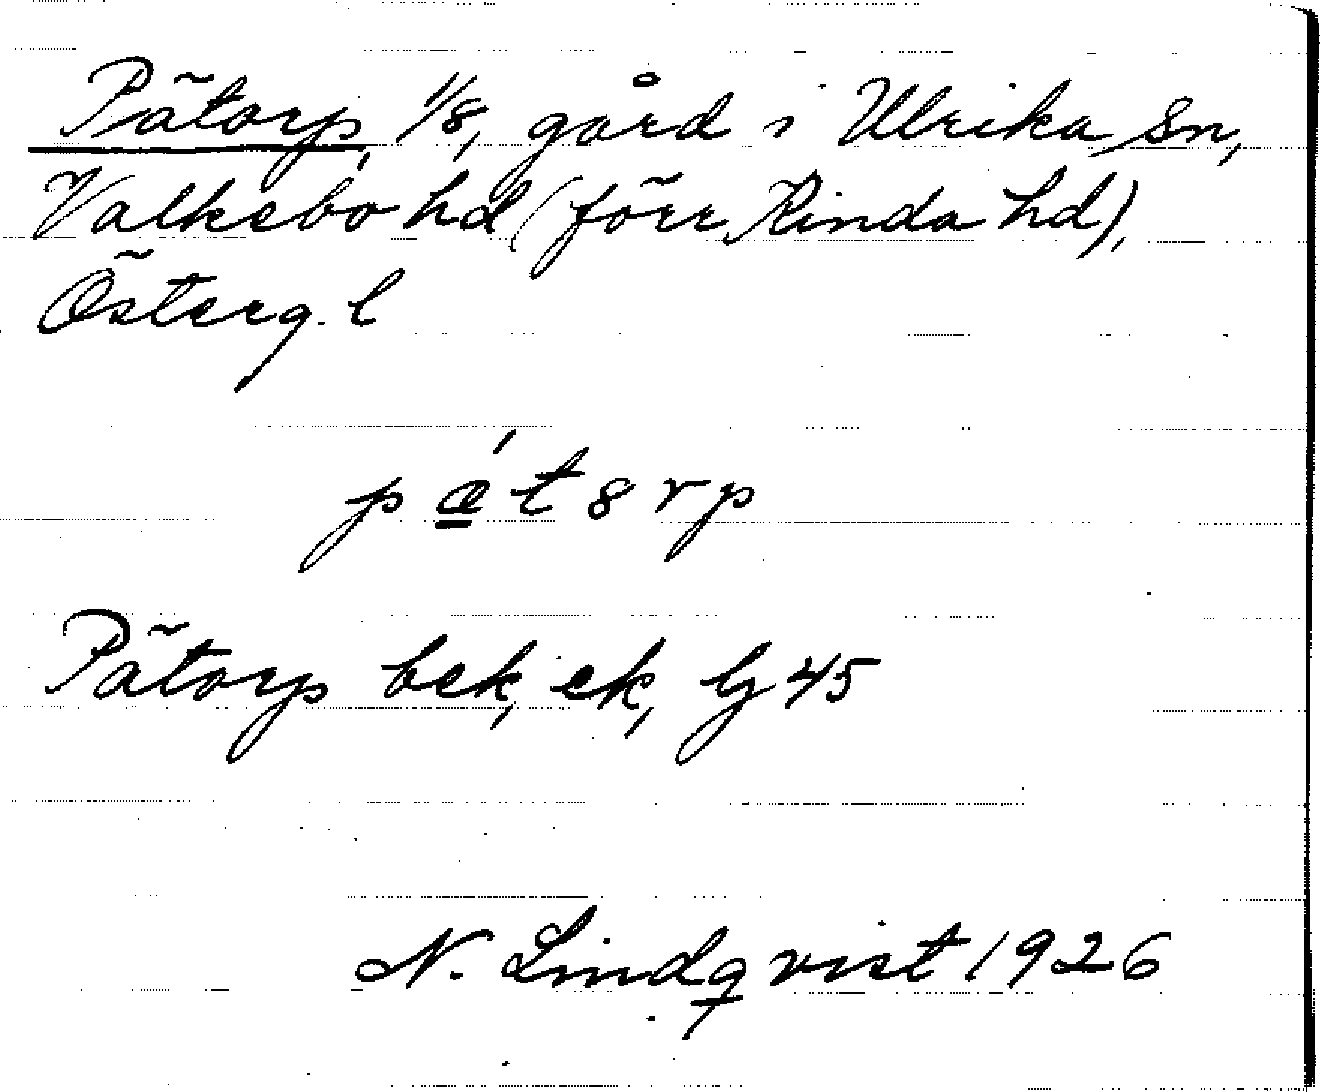 Pätorp, 1/8, gård i Ulrika sn,
Valkebo hd (förr Kinda hd),
Österg. l
Pätorp bek, ek, lj 45
N. Lindqvist 1926